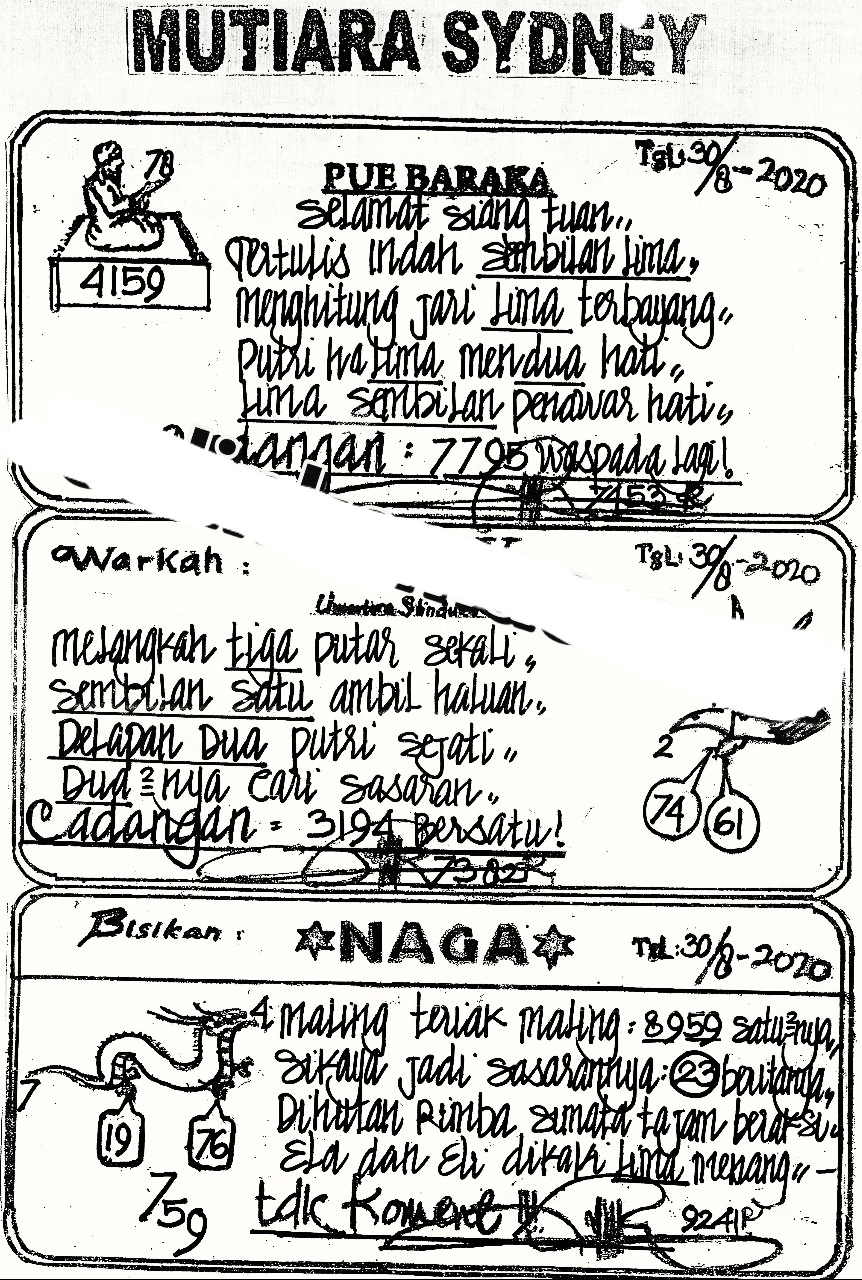 MUTIARA SYDNEY
78
4159
PUE BARAKA
Tgl: 30/8-2020
Selamat siang tuan,,
Tertulis indah sembilan lima,,
menghitung jari lima terbayang,,
Putri ha lima mendua hati,,
Lima sembilan penawar hati,,
angan : 7795 waspada lagi!
7453
Warkah :
Tgl: 30/8-2020
melangkah tiga putar sekali,,
Sembilan satu ambil haluan,,
Delapan Dua putri sejati,,
Dua 2 nya cari sasaran,,
Cadangan = 3194 Bersatu!
7382
2
74
61
Bisikan :
NAGA
Tgl: 30/8-2020
4
7
19
76
759
maling teriak maling : 8959 satu2nya,,
Sikaya jadi sasarannya : 23
Dihutan Rimba
Ela dan Eli lima menang,, -
tdk Koment !!
9241